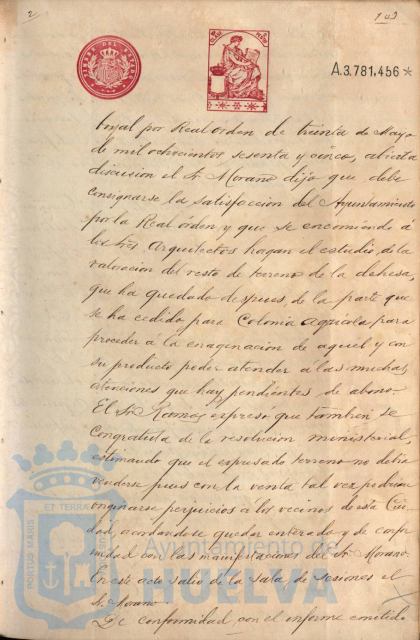 2
102
TIMBRE DEL ESTADO
A.3.781,456*
boyal por Real orden de treinta de Mayo
de mil ochocientos sesenta y cinco, abierta
discusion el Sr. Moraño dijo que debe
consignarse la satisfaccion del Ayuntamiento
por la Real orden y que se encomiende á
los Sres Arquitectos hagan el estudio, de la
valoracion del resto de terreno de la dehesa,
que ha quedado despues, de la parte que
se ha cedido para Colonia Agricola para
proceder á la enagenacion de aquel y con
su producto poder atender á las muchas
atenciones que hay pendientes de abono.
El Sr. Ramos expresó que tambien se
congratula de la resolucion ministerial,
estimando que el espresado terreno no debia
venderse pues con la venta tal vez podrian
originarse perjuicios á los vecinos de esta Ciu-
dad, acordandose quedar enterado y de confor
midad con las manifestaciones del Sr. Morano.
En este acto salió de la Sala de Sesiones el
Sr. Morano
De conformidad con el informe emitido
PORTUS MARIS
ET TERRAE
Ayuntamiento de
HUELVA